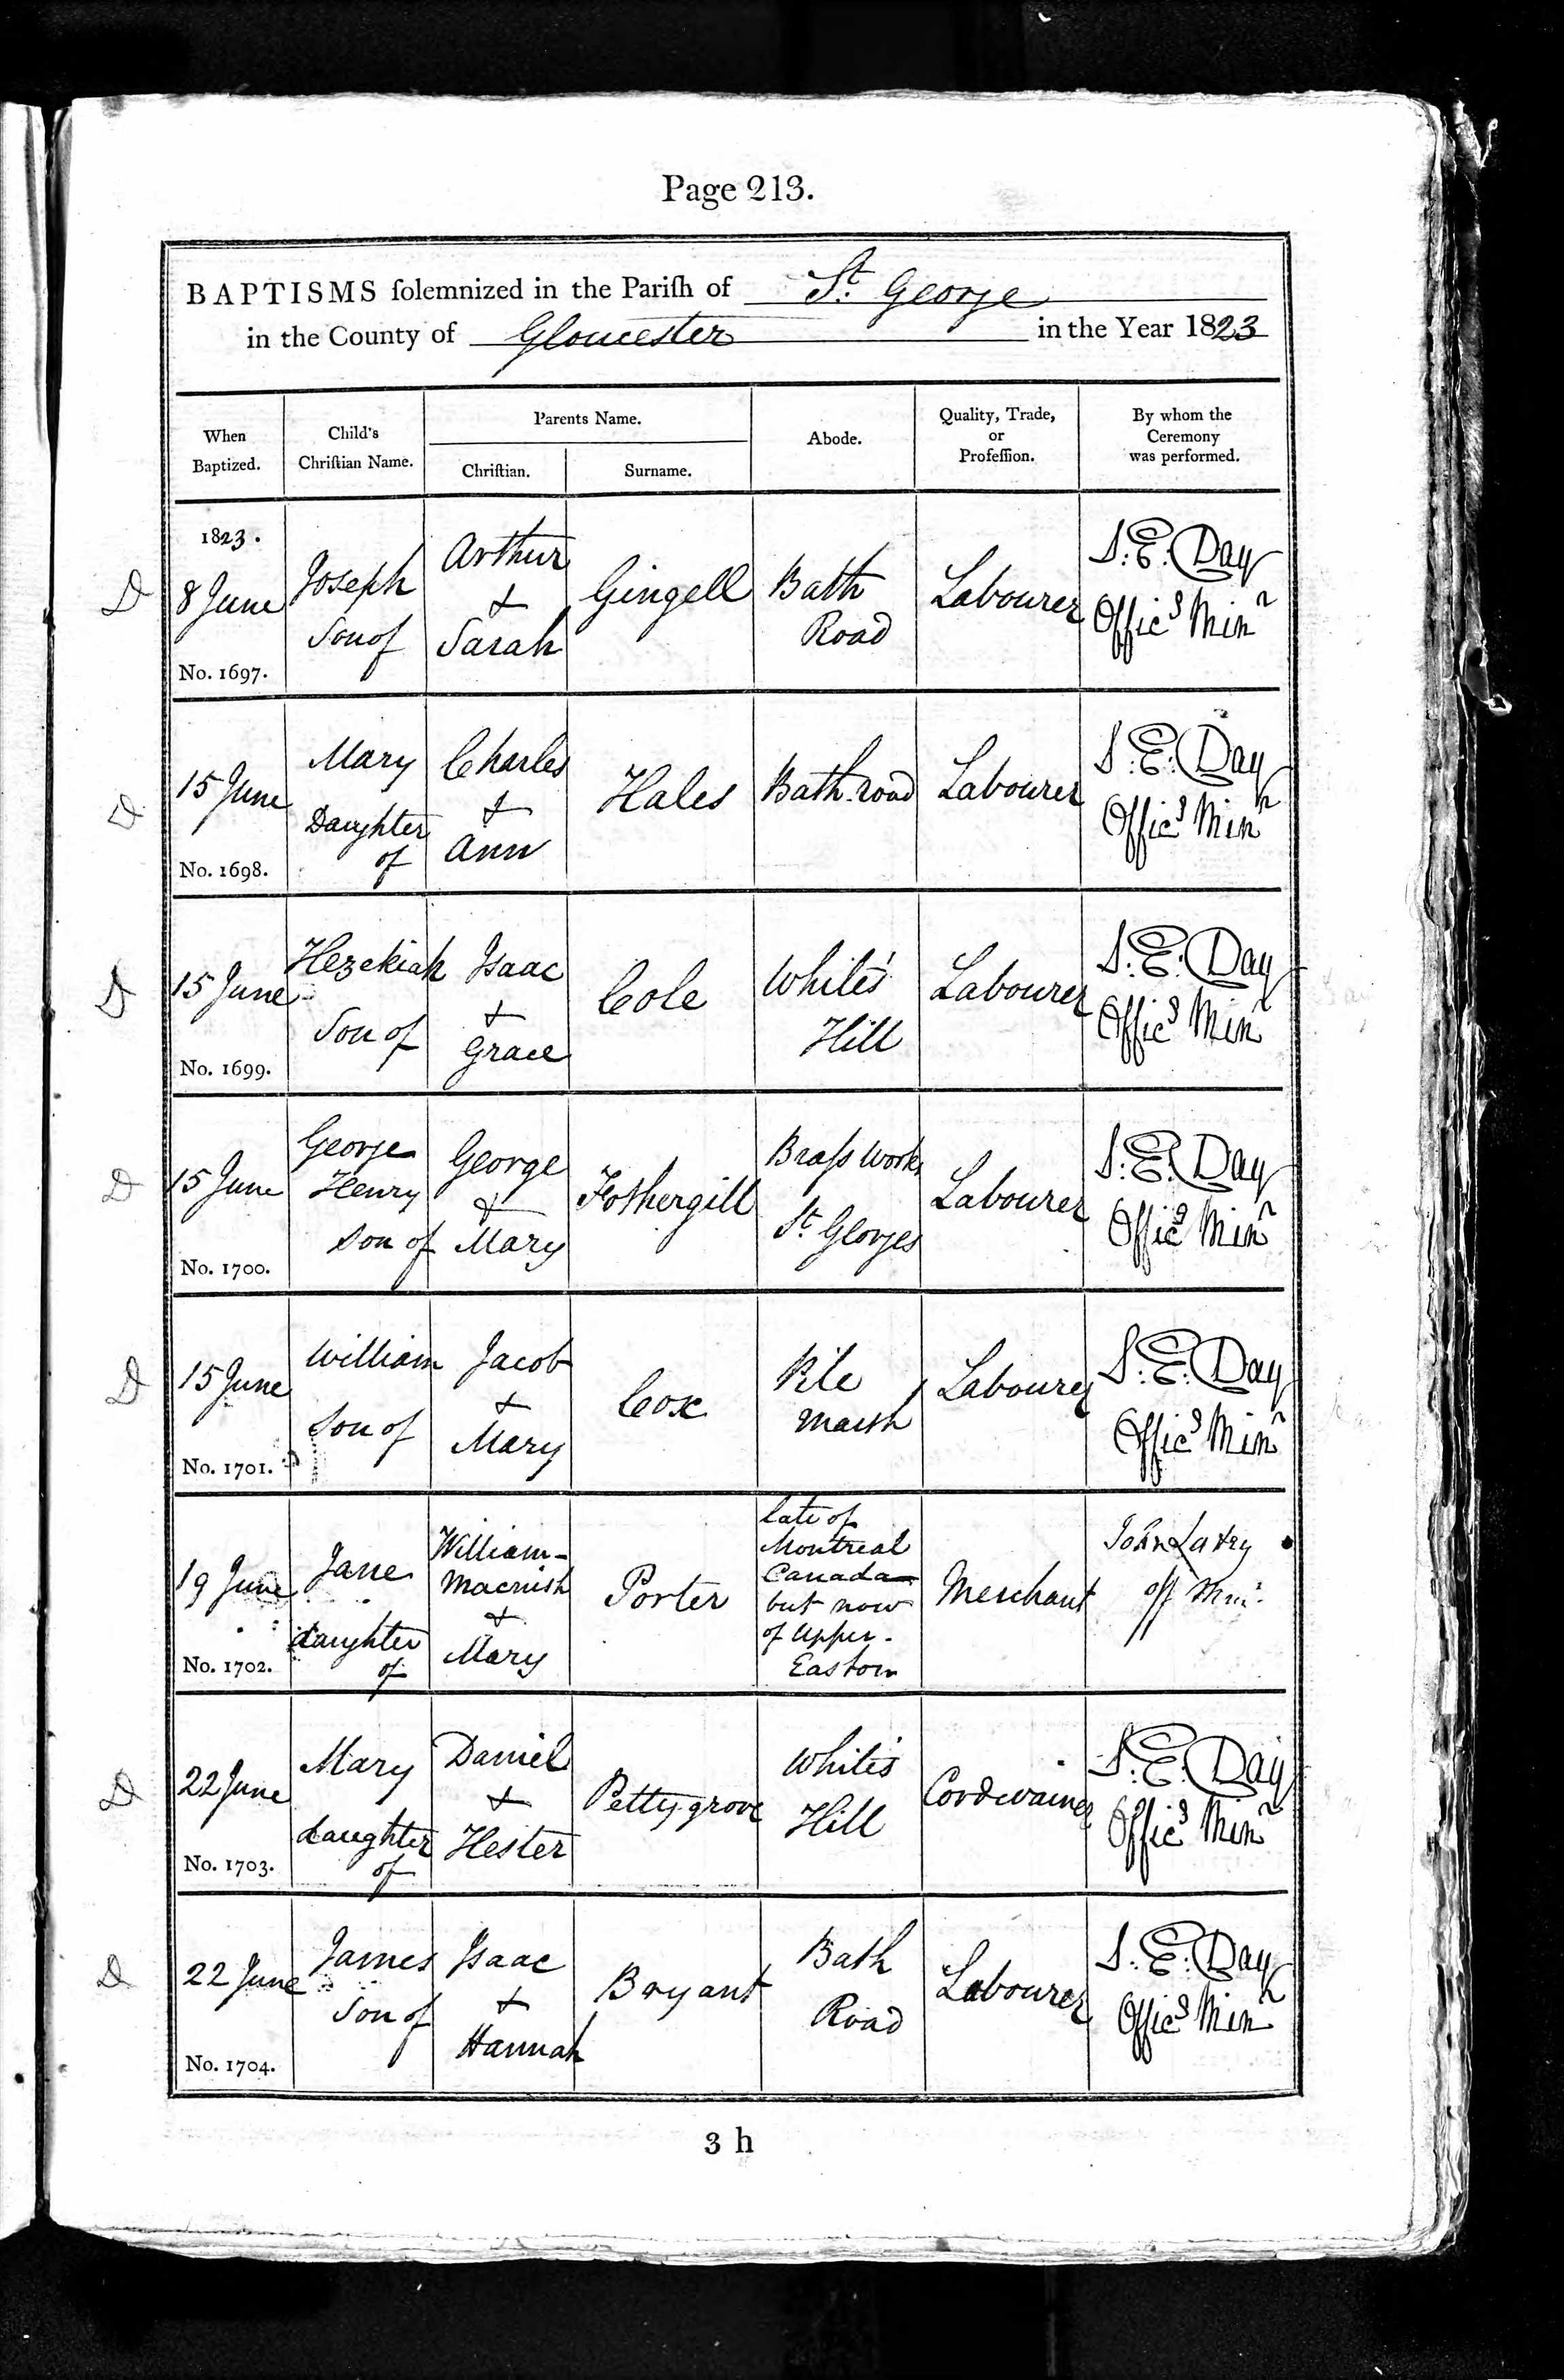 Page 213.
BAPTISMS ſolemnized in the Pariſh of St. George
in the County of Gloucester in the Year 1823
When
Baptized.
Child's
Chriſtian Name.
Parents Name.
Chriſtian.
Surname.
Abode.
Quality, Trade,
or
Profeſſion.
By whom the
Ceremony
was performed.
1823.
D
8 June
No. 1697.
Joseph
Son of
Arthur
&
Sarah
Gingell
Bath
Road
Labourer
S. E. Day
Officg Minr
D
15 June
No. 1698.
Mary
Daughter
of
Charles
&
Ann
Hales
Bath road
Labourer
S. E. Day
Officg Minr
D
15 June
No. 1699.
Hezekiah
Son of
Isaac
&
Grace
Cole
White's
Hill
Labourer
S. E. Day
Officg Minr
D
15 June
No. 1700.
George
Henry
Son of
George
&
Mary
Fothergill
Braſs Works
St. Georges
Labourer
S. E. Day
Officg Minr
D
15 June
No. 1701.
William
Son of
Jacob
&
Mary
Cox
Pile
Marsh
Labourer
S. E. Day
Officg Minr
19 June
No. 1702.
Jane
daughter
of
William-
Macnish
&
Mary
Porter
late of
Montreal
Canada
but now
of Upper
Easton
Merchant
John
off Minr.
D
22 June
No. 1703.
Mary
daughter
of
Daniel
&
Hester
Pettygrove
White's
Hill
Cordwainer
S. E. Day
Officg Minr
D
22 June
No. 1704.
James
Son of
Isaac
&
Hannah
Bryant
Bath
Road
Labourer
S. E. Day
Officg Minr
3 h